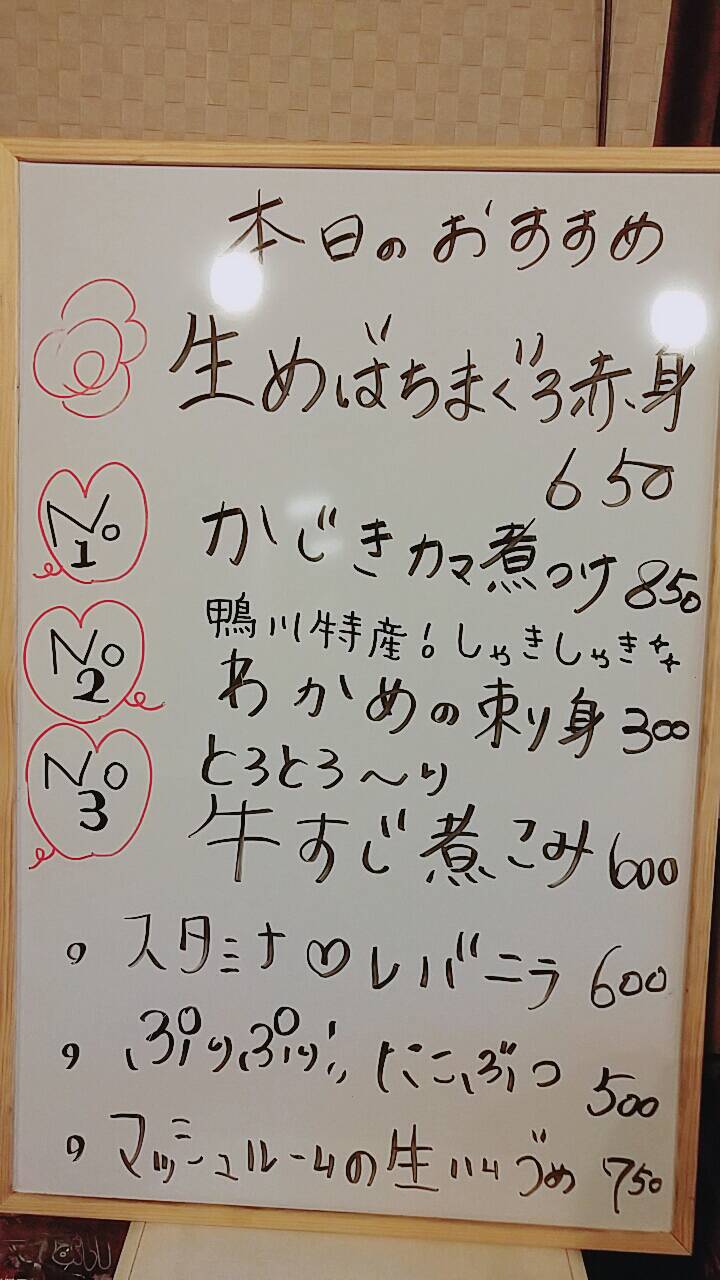 本日のおすすめ
生めばちまぐろ赤身
650
No 1 かじきカマ煮つけ 850
鴨川特産!しゃきしゃき
No 2 わかめの刺り身 300
とろとろ～り
No 3 牛すじ煮こみ 600
スタミナ♡レバニラ 600
ぷりぷり!! たこぶつ 500
マッシュルームの生ハムづめ 750